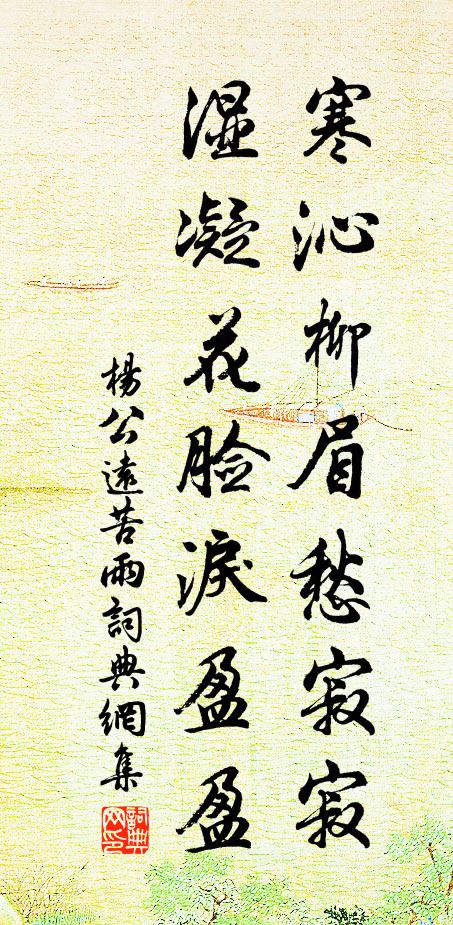 寒沁柳眉愁寂寂
湿凝花脸淚盈盈
楊公遠苦雨詞典網集
詞典網印